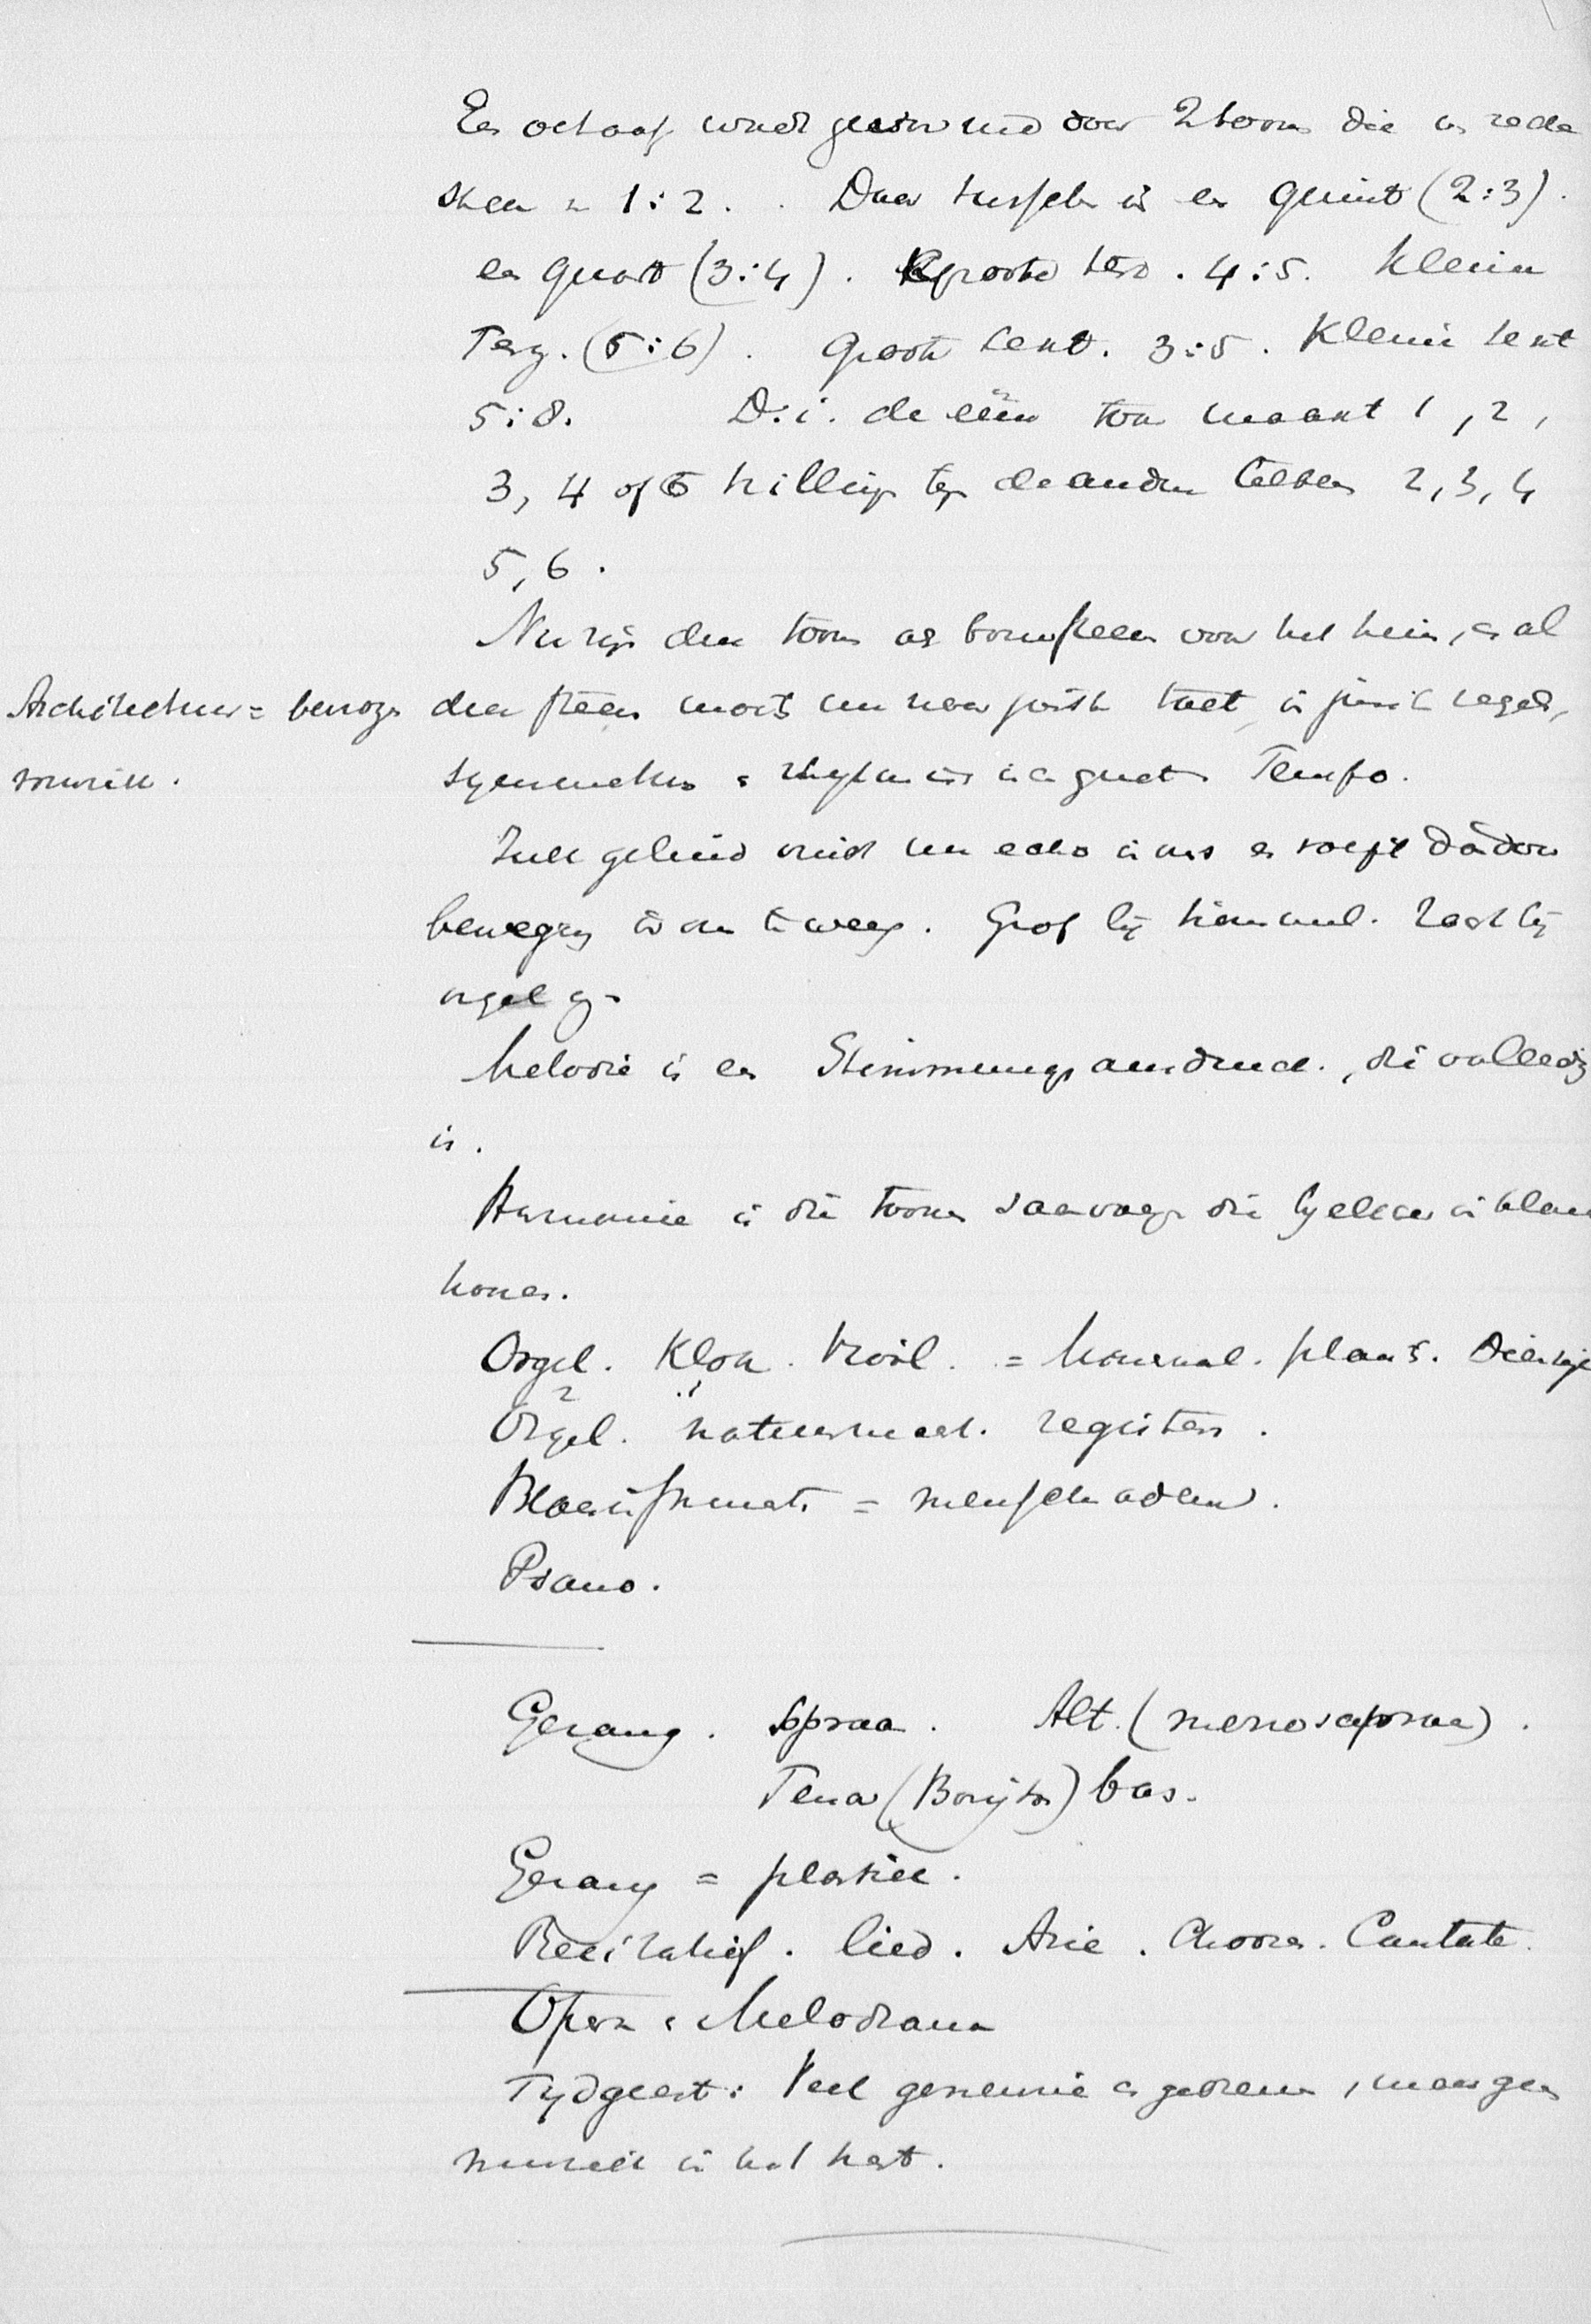 Een octaaf wordt gevormd door 2 toonen die in rede
staan = 1:2. Daar tusschen is een quint (2:3).
een quart (3:4). groote terz. 4:5. Kleine
Terz. (5:6). Groote sext. 3:5. Kleine sext
5:8. D.i. de één toon maakt 1, 2,
3, 4 of 5 trilling teg. de andere telkens 2, 3, 4
5, 6.
Nu zijn deze toonen de bouwsteen voor het huis, en al
Architectuur = bevroz. deze steen moet nu naar juiste maat, in juiste regel,
muziek. symmetrie = rhythmus in goed Tempo.
Zulk geluid vindt een echo in ons en roept daardoor
beweging in ons te weeg. Grof bij trommel. Zacht bij
orgel enz.
Melodie is een Stimmungsausdruck, die volledig
is.
Harmonie is die toonen die bij elkaar in klank
komen.
Orgel. Klok. Viool. =
Orgel. registers.
Blaasinstrument. = menschenadem.
Piano.
Gezang. Sopraan. Alt. (mezzosopraan).
Tenor (Bariton) bas.
Gezang = plastiek.
Recitatief. Lied. Arie. Chooren. Cantate.
Opera = Melodrama
Tijdgeest: Veel en, maar geen
muziek in het hart.